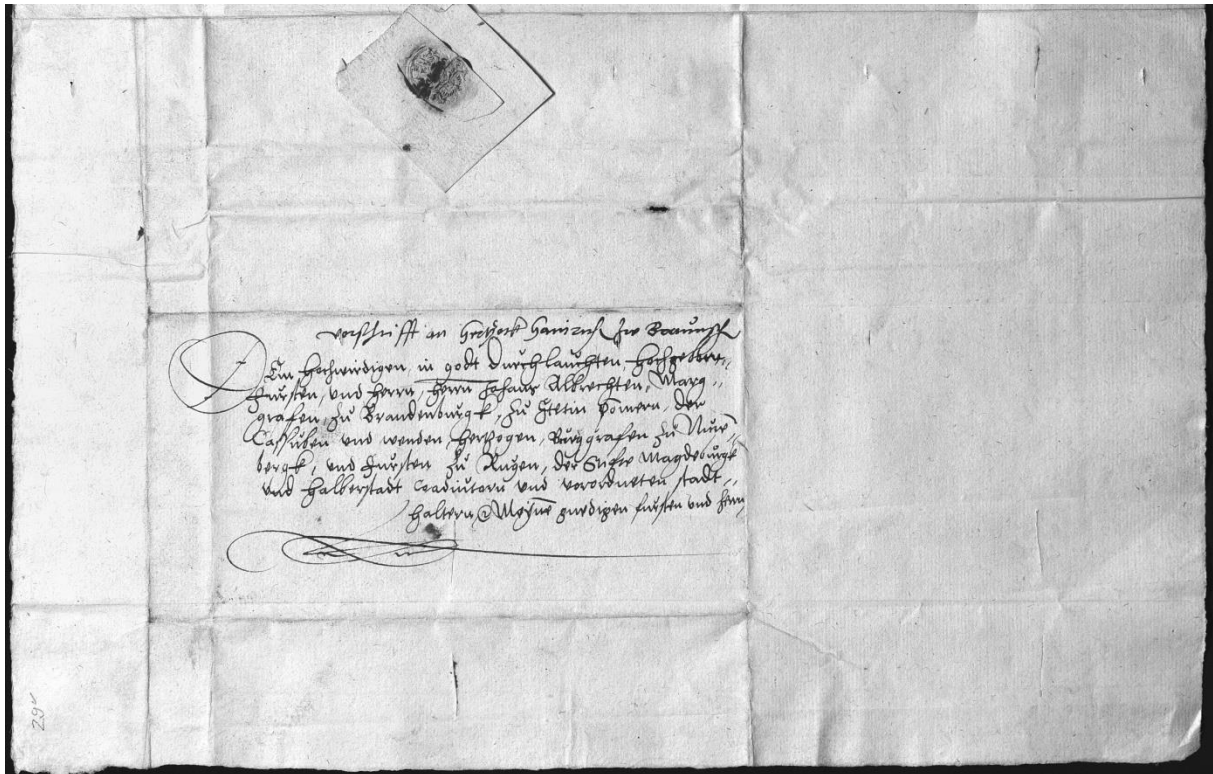 vorschrifft an Hertzock Hainrich zw Braunsch
Dem Hochwirdigen, in godt Durchlauchten, Hochgebore„
Fursten, und Herrn, Herrn Johans Albrechten, Marg„
grafen, zu Brandenburgk, zu Stetin Pomern, der
Cassuben und wenden, Hertzogen, Burggrafen zu Nurm„
bergk, und Fursten zu Rugen, der Stiffte Magdeburgk
und Halberstadt Coadiutorn und vorordneten stadt„
haltern, Meynē gnedigen fursten und herrn
295